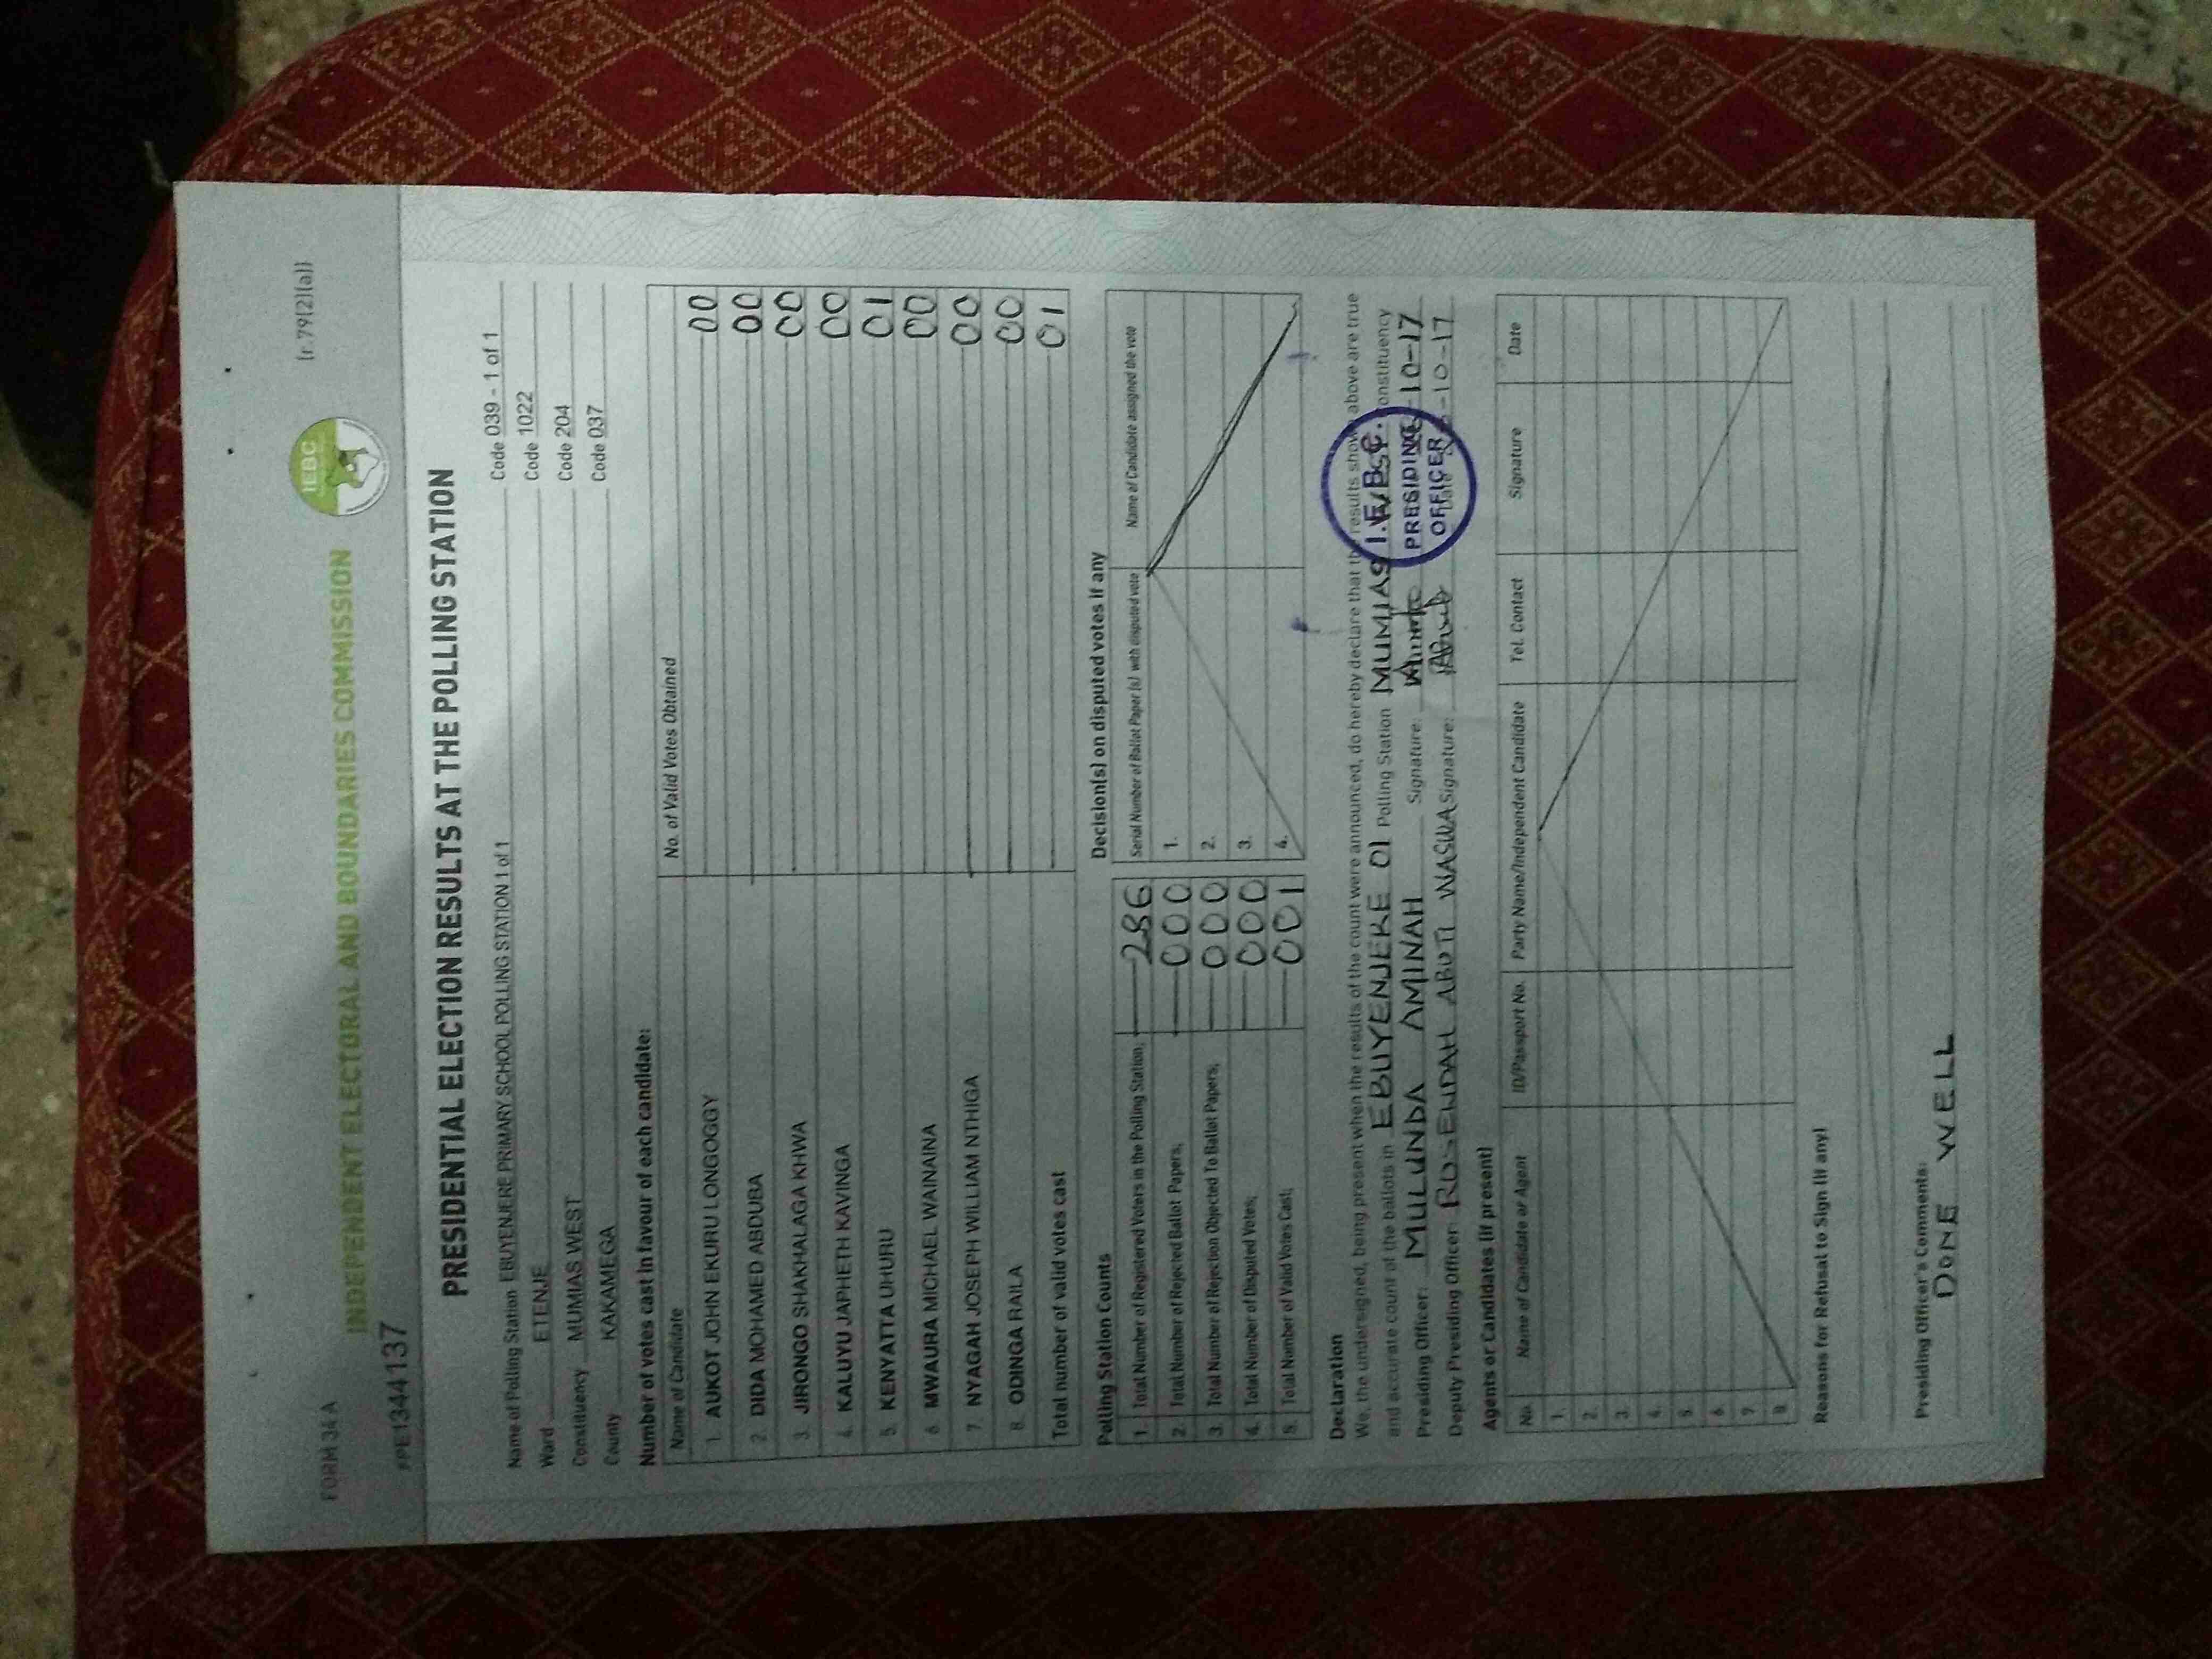 FORM 34 A
(r.79(2)(a))
INDEPENDENT ELECTORAL AND BOUNDARIES COMMISSION
IEBC
PRE1344137
PRESIDENTIAL ELECTION RESULTS AT THE POLLING STATION
Name of Polling Station EBUYENJERE PRIMARY SCHOOL POLLING STATION 1 of 1 Code 039 - 1 of 1
Ward ETENJE Code 1022
Constituency MUMIAS WEST Code 204
County KAKAMEGA Code 037
Number of votes cast in favour of each candidate:
Name of Candidate No. of Valid Votes Obtained
1. AUKOT JOHN EKURU LONGOGGY 00
2. DIDA MOHAMED ABDUBA 00
3. JIRONGO SHAKHALAGA KHWA 00
4. KALUYU JAPHETH KAVINGA 00
5. KENYATTA UHURU 01
6. MWAURA MICHAEL WAINAINA 00
7. NYAGAH JOSEPH WILLIAM NTHIGA 00
8. ODINGA RAILA 00
Total number of valid votes cast 01
Polling Station Counts
1. Total Number of Registered Voters in the Polling Station; 286
2. Total Number of Rejected Ballot Papers; 000
3. Total Number of Rejection Objected To Ballot Papers; 000
4. Total Number of Disputed Votes; 000
5. Total Number of Valid Votes Cast; 001
Decision(s) on disputed votes if any
Serial Number of Ballot Paper(s) with disputed vote Name of Candidate assigned the vote
1.
2.
3.
4.
Declaration
We, the undersigned, being present when the results of the count were announced, do hereby declare that the results shown above are true
and accurate count of the ballots in EBUYENJERE 01 Polling Station MUMIAS Constituency
Presiding Officer: MULUNDA AMINAH Signature: -10-17
Deputy Presiding Officer: ROSENDAH ABUTI WASWA Signature: -10-17
I.E.B.C.
PRESIDING
OFFICER
Agents or Candidates (if present)
No. Name of Candidate or Agent ID/Passport No. Party Name/Independent Candidate Tel. Contact Signature Date
1.
2.
3.
4.
5.
6.
7.
8.
Reasons for Refusal to Sign (if any)
Presiding Officer's Comments:
DONE WELL